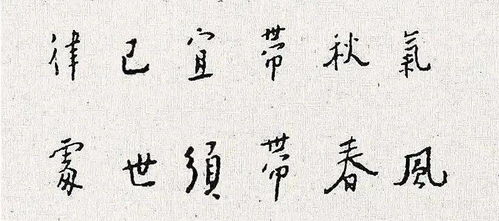 律己宜帶秋氣
處世須帶春風